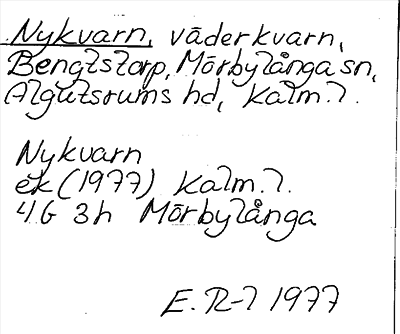 Nykvarn, väderkvarn,
Bengtstorp, Mörbylånga sn,
Algutsrums hd, Kalm. l.
Nykvarn
ek (1977) Kalm. l.
4G 3h Mörbylånga
E. R-l 1977